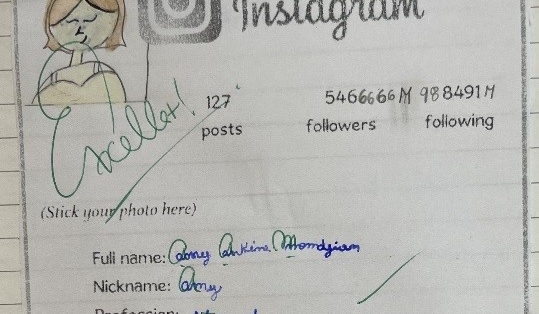 Instagram
Excellent!
127 5466666M 988491M
posts followers following
(Stick your photo here)
Full name: Amy Ankine Momdjian
Nickname: Amy
Profession: